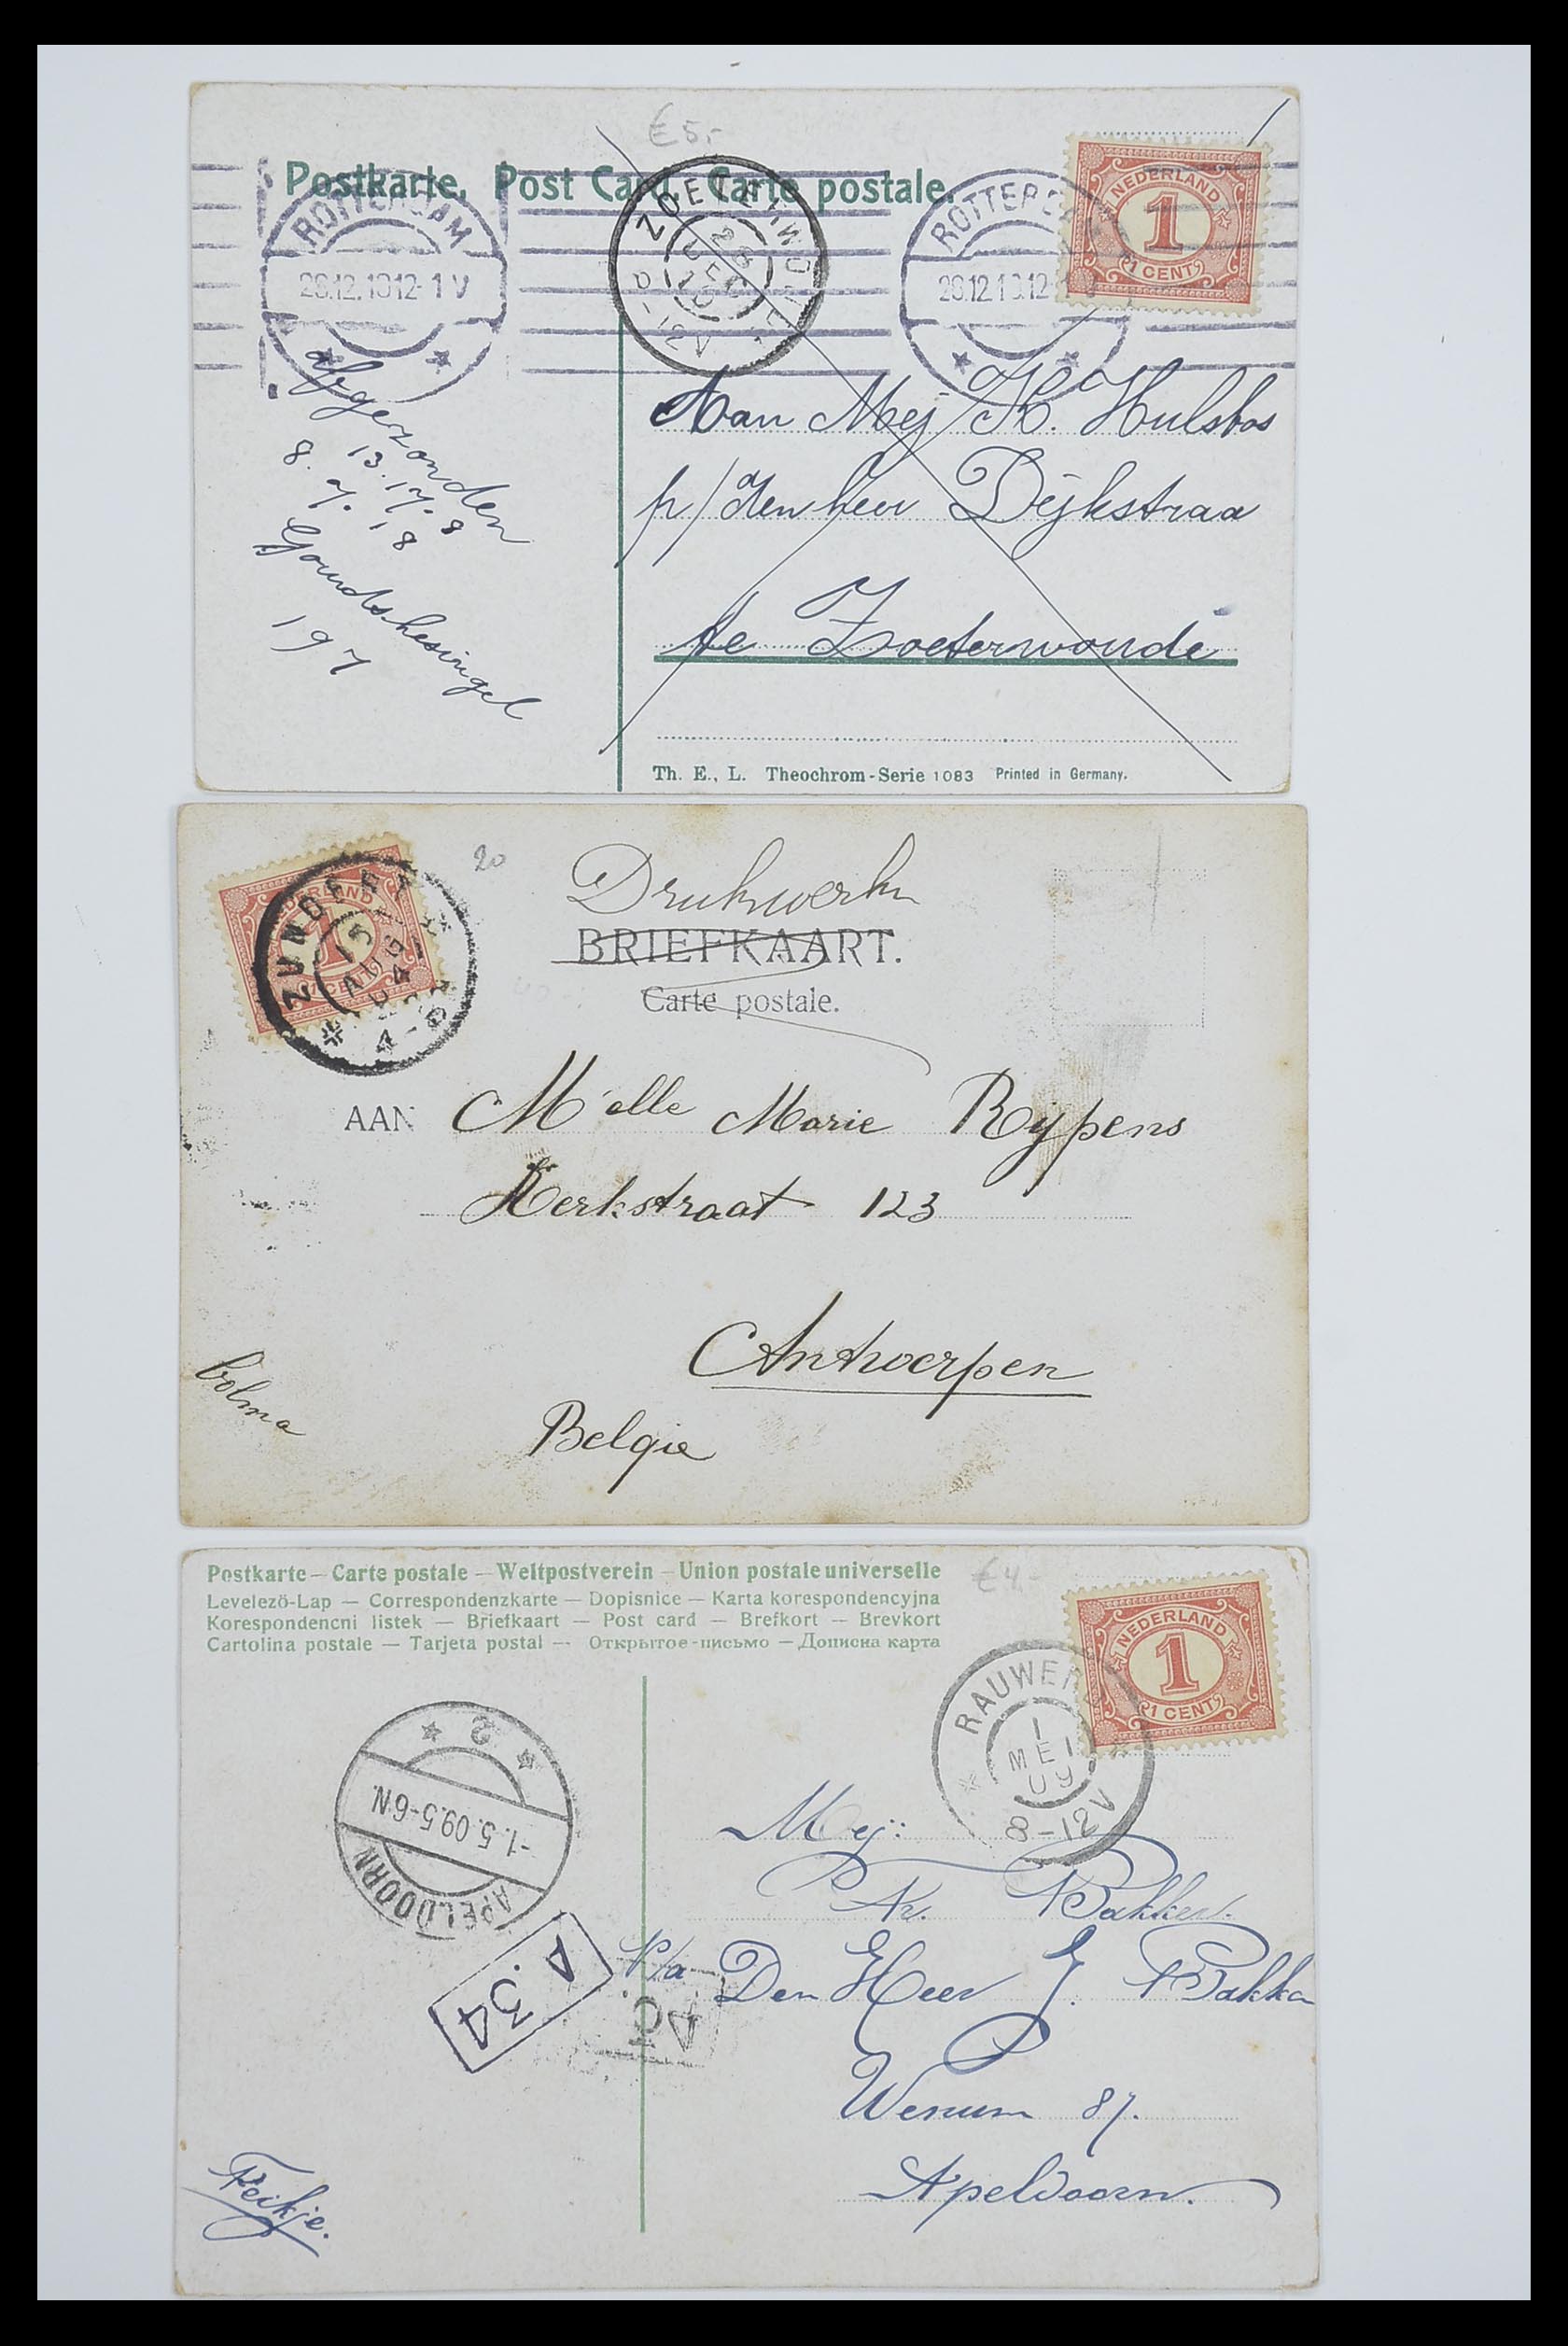 € 5,-
Postkarte, Post Card, Carte postale.
ROTTERDAM
28.12.10 12-1 V
ZOETERWOUDE
28
DEC
10
ROTTERD
28.12.10.12-1 V
NEDERLAND
1
1 CENT
Aan Mej K. Hulsbos
p/ den heer Dijkstraa
te Zoeterwoude
Afgezonden
13.17.8
8. 7. 18
Goudschesingel
197
Th. E., L. Theochrom-Serie 1083 Printed in Germany.
NEDERLAND
1
1 CENT
ZUNDERT
15
AUG
04
20
Drukwerk
BRIEFKAART.
Carte postale.
AAN M'elle Marie Rijpens
Kerkstraat 123
Antwerpen
Belgie
Postkarte – Carte postale – Weltpostverein – Union postale universelle
Levelezö-Lap — Correspondenzkarte — Dopisnice — Karta korespondencyjna
Korespondencni listek — Briefkaart — Post card — Brefkort — Brevkort
Cartolina postale — Tarjeta postal — Открытое-письмо — Дописна карта
€ 4.-
NEDERLAND
1
1 CENT
RAUWER
1
MEI
09
8-12V
2
-1.5.09.5-6N.
APELDOORN
A.34
Mej:
Tr. Bakker.
P/a Den Heer J. Bakker
Wenum 87.
Apeldoorn.
Feikje.